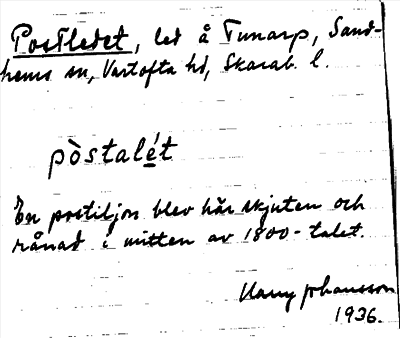 Postledet, led å Tunarp, Sand-
hems sn, Vartofta hd, Skarab. l.
pòstalét
En postiljon blev här skjuten och
rånad i mitten av 1800-talet.
Harry Johansson
1936.